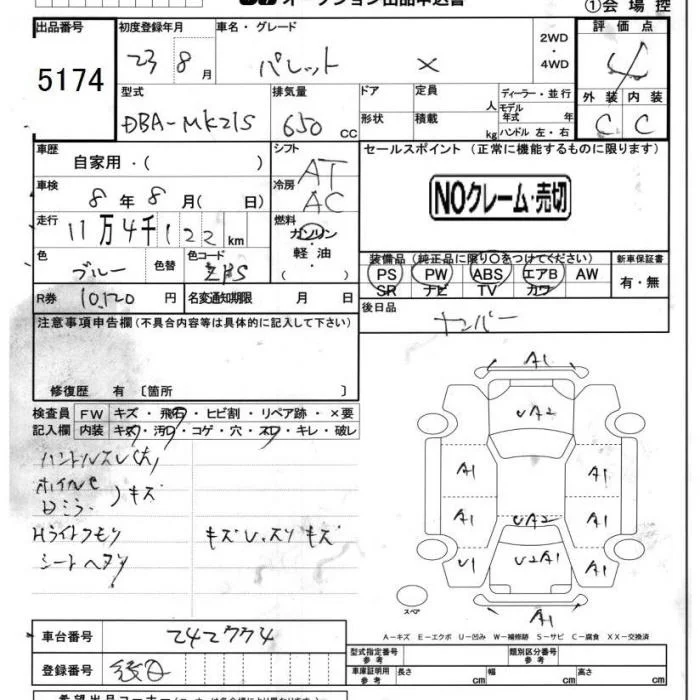 オークション出品申込書
①会場控
出品番号
5174
初度登録年月
23 8月
車名・グレード
パレット X
2WD
・
4WD
評価点
4
外装 内装
C C
型式
DBA-MK21S
排気量
650 CC
ドア
形状
定員 人
積載 kg
ディーラー・並行
モデル年式 年
ハンドル 左・右
車歴
自家用・( )
シフト
AT
セールスポイント (正常に機能するものに限ります)
NOクレーム・売切
車検
8年8月( 日)
冷房
AC
走行
11万4千122km
燃料
ガソリン
軽油
( )
色
ブルー
色替
色コード
ZJS
装備品 (純正品に限り○をつけてください)
PS PW ABS エアB AW
SR ナビ TV カワ
新車保証書
有・無
R券 10,120 円
名変通知期限 月 日
後日品
ナンバー
注意事項申告欄(不具合内容等は具体的に記入して下さい)
修復歴 有 〔箇所 〕
検査員 FW キズ・飛石・ヒビ割・リペア跡・×要
記入欄 内装 キズ・汚れ・コゲ・穴・スレ・キレ・破レ
ハンドルスレ(大)
ホイルC
Dミラ )キズ
Hライトクモリ キズU、スリキズ
シートヘタリ
A1
UA2
A1 A1
A1 A1
UA2
U1 UA1 A1
A1
スペア
A-キズ E-エクボ U-凹み W-補修跡 S-サビ C-腐食 XX-交換済
車台番号 242774
登録番号 後日
型式指定番号
参考
類別区分番号
参考
車庫証明用
参考
長さ cm 幅 cm 高さ cm